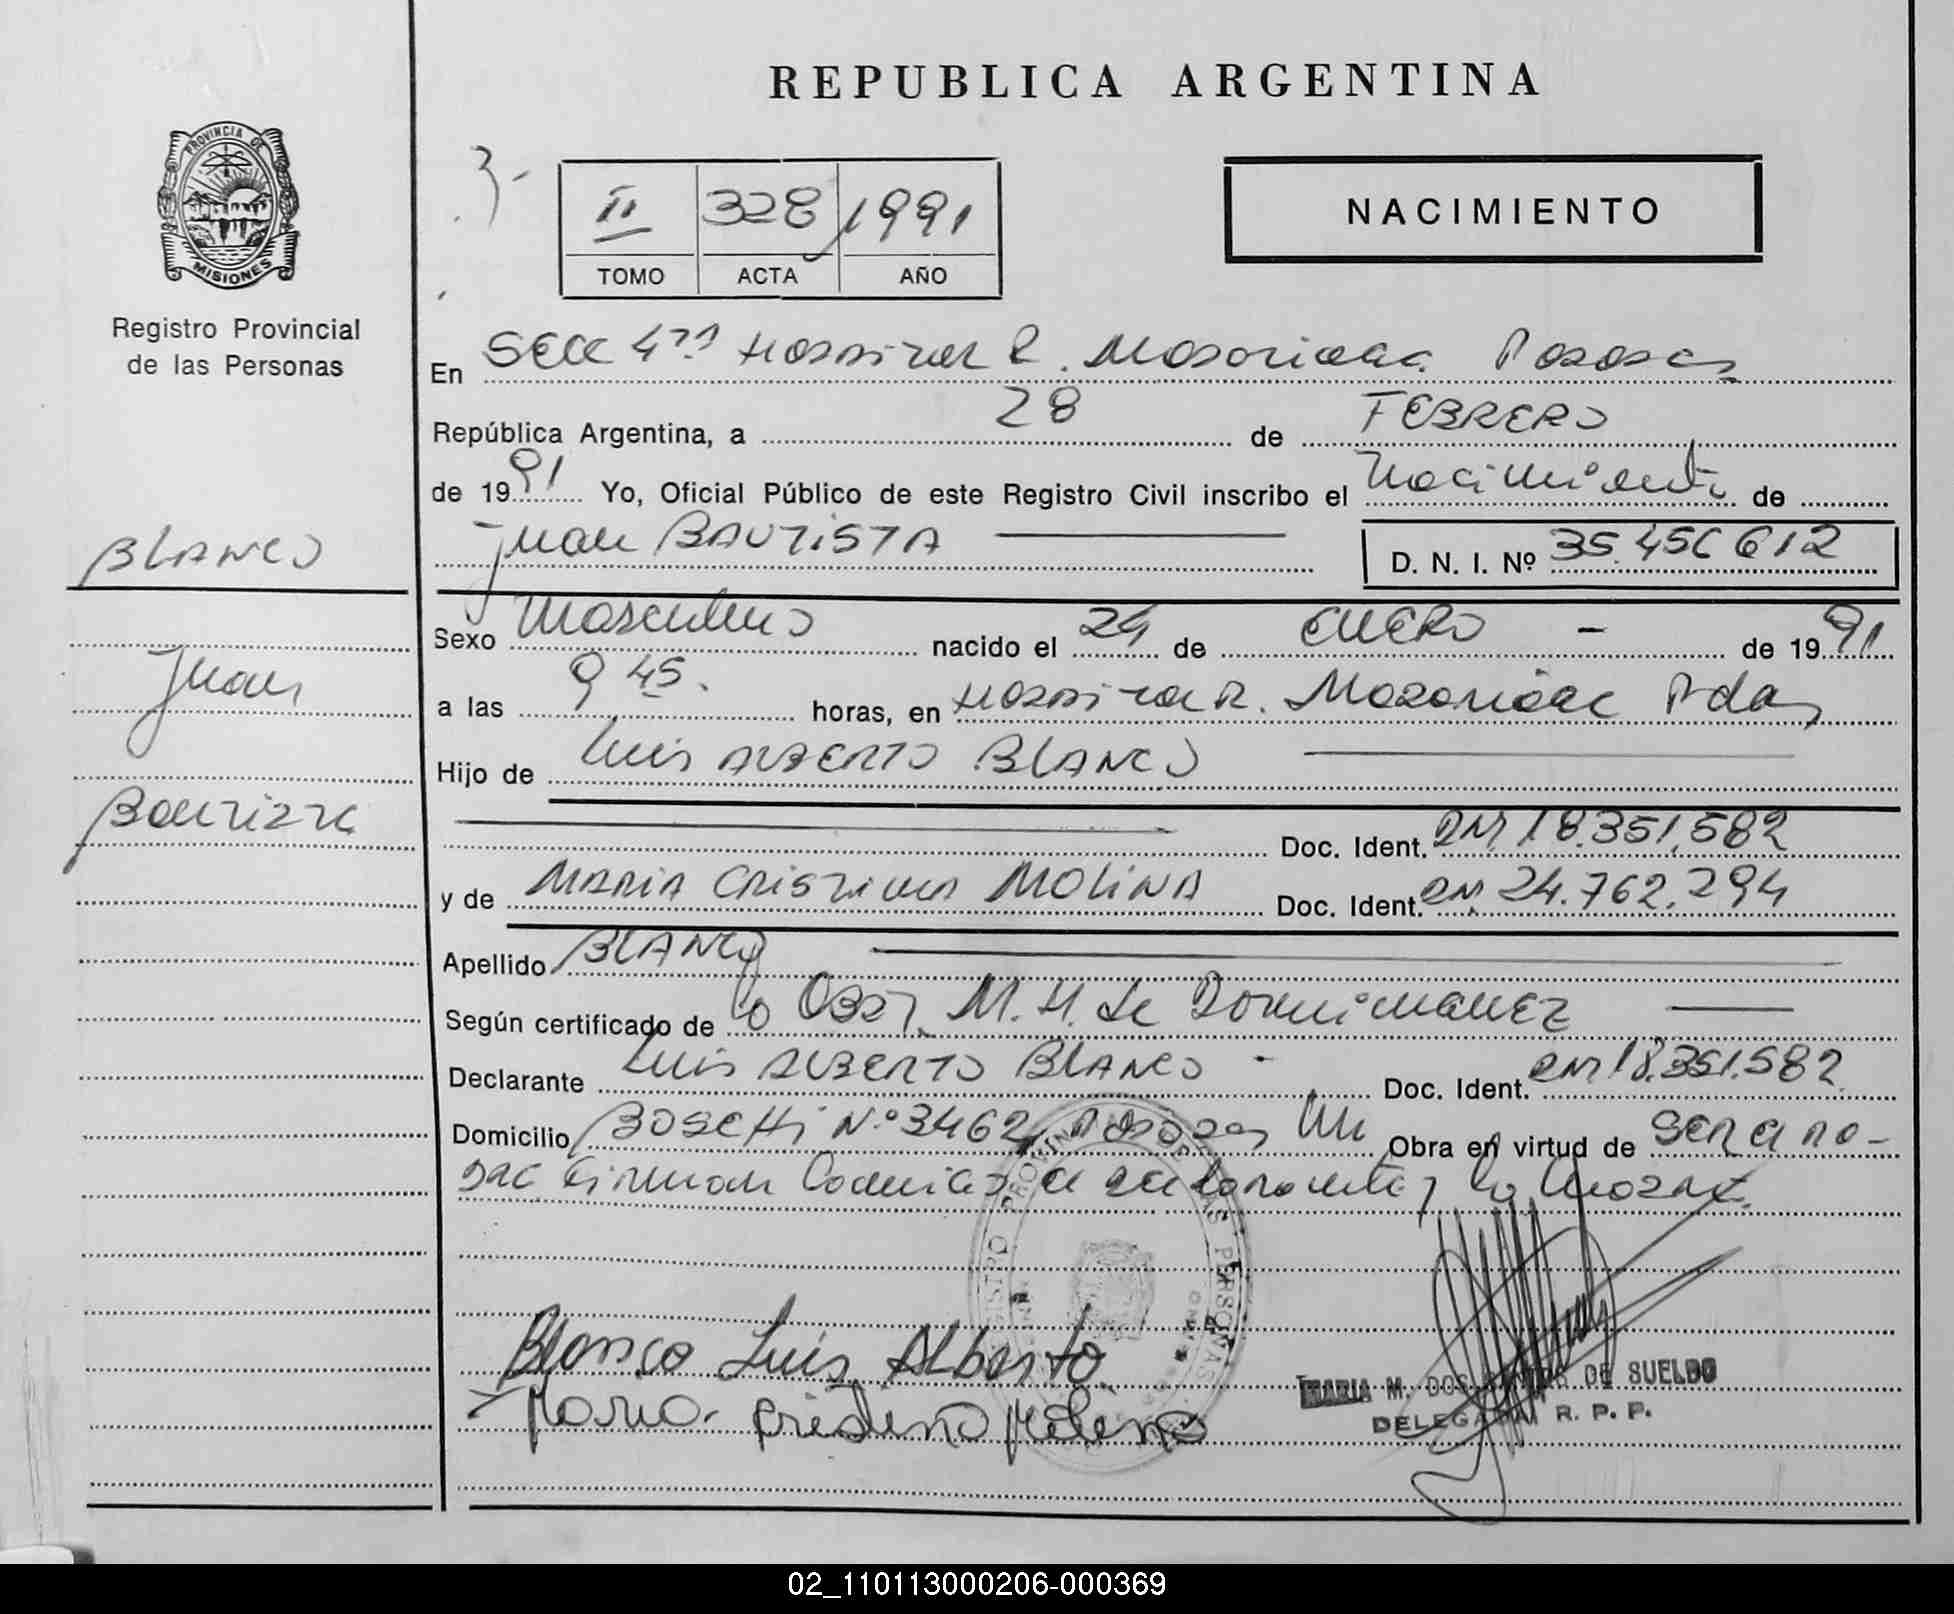 REPUBLICA ARGENTINA
PROVINCIA DE
MISIONES
Registro Provincial
de las Personas
3-
II 328 1991
TOMO ACTA AÑO
NACIMIENTO
En Secc 4ta Hospital R. Madariaga Posadas
República Argentina, a 28 de FEBRERO
de 1991 Yo, Oficial Público de este Registro Civil inscribo el Nacimiento de
Juan BAUTISTA D. N. I. Nº 35.456 612
BLANCO
Juan
Bautista
Sexo Masculino nacido el 24 de ENERO - de 1991
a las 9 45. horas, en Hospital R. Madariaga Pdas
Hijo de Luis ALBERTO BLANCO
Doc. Ident. DNI 18.351.582
y de MARIA CRISTINA MOLINA Doc. Ident. DNI 24.762.294
Apellido BLANCO
Según certificado de la Obst. M. H. de Dominguez
Declarante Luis ALBERTO BLANCO - Doc. Ident. DNI 18.351.582
Domicilio BOSETTI N.º 3462, Posadas Mi Obra en virtud de ser el pa-
dre. Firman conmigo el declarante y la madre.
REGISTRO PROVINCIAL DE LAS PERSONAS
Blanco Luis Alberto
Maria Cristina Molina
MARIA M. DOS DE SUELDO
DELEGADA R. P. P.
02_110113000206-000369